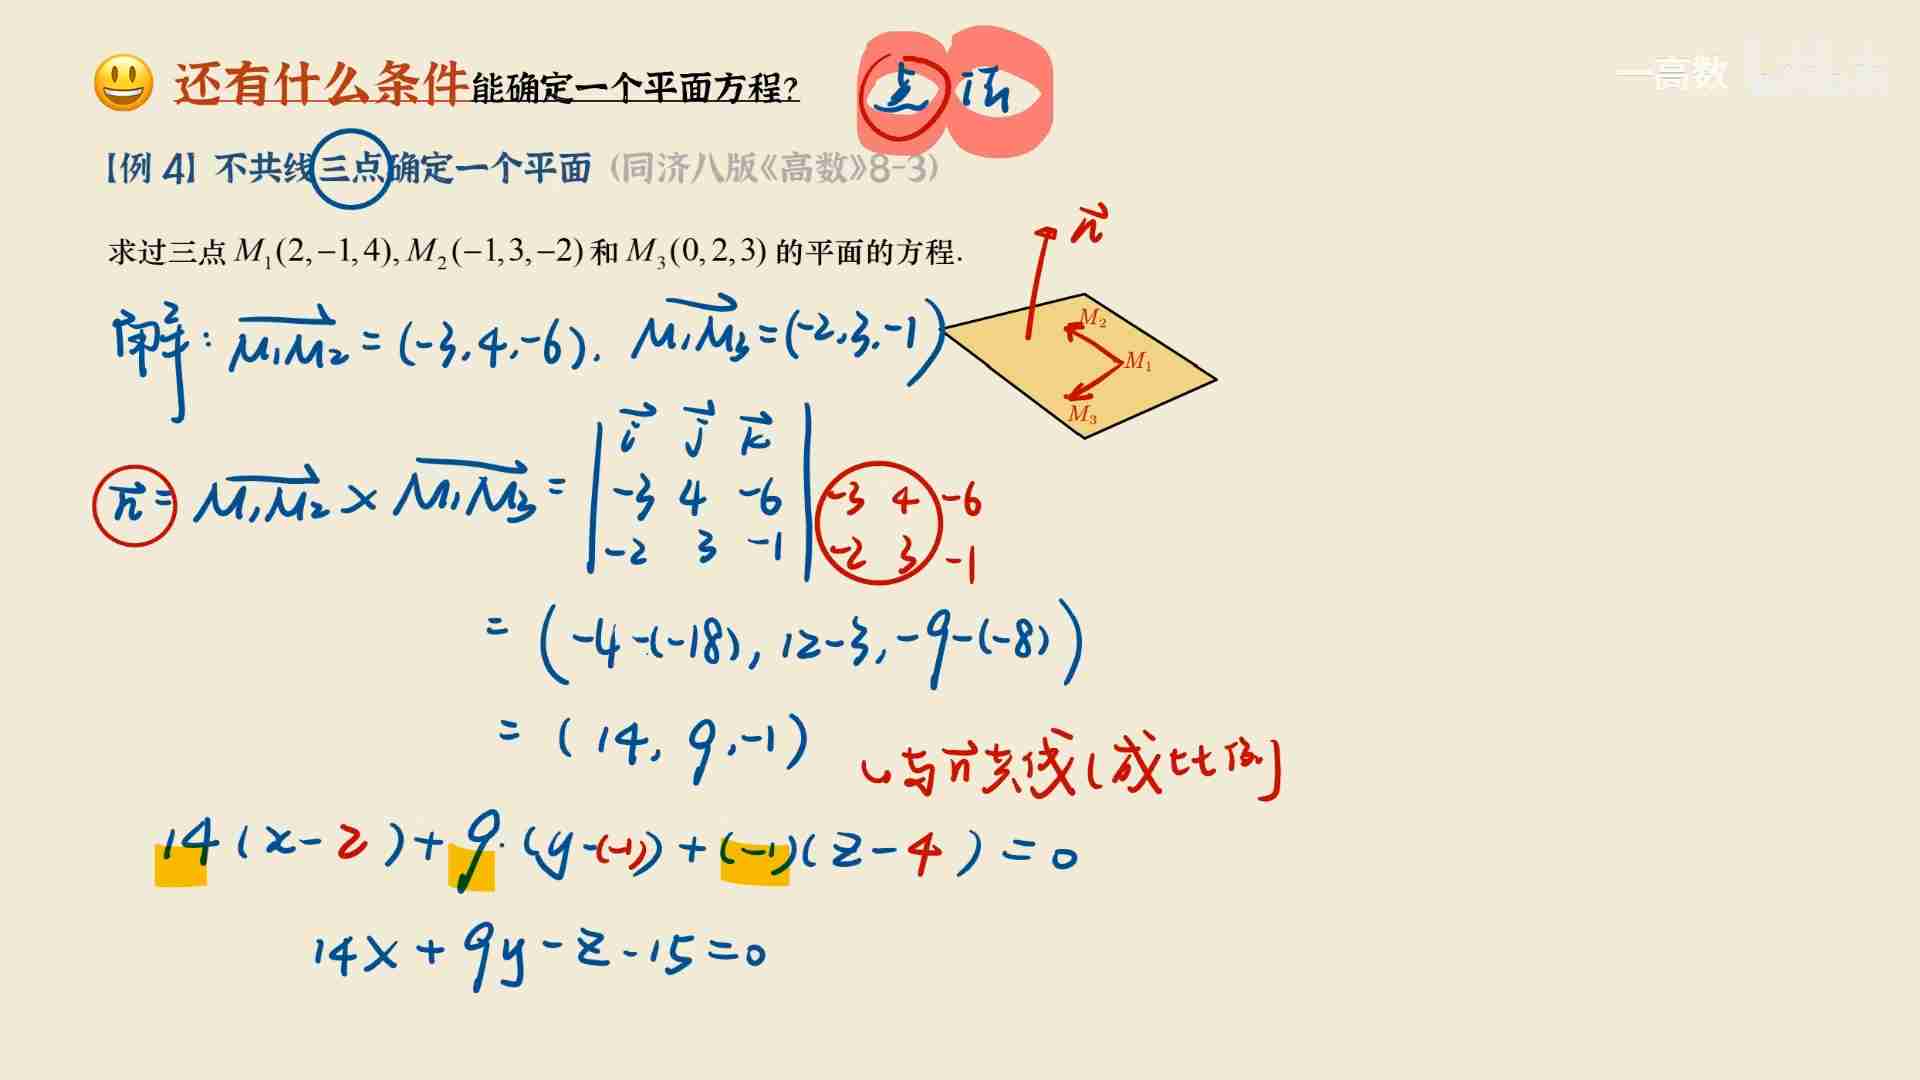 还有什么条件能确定一个平面方程? 点 法
一高数
【例 4】不共线三点确定一个平面 (同济八版《高数》8-3)
求过三点 M₁(2,−1,4), M₂(−1,3,−2) 和 M₃(0,2,3) 的平面的方程.
n⃗
M₂
M₁
M₃
解: M₁M₂⃗ = (-3,4,-6). M₁M₃⃗ = (-2,3,-1)
n⃗ = M₁M₂⃗ × M₁M₃⃗ = | i⃗ j⃗ k⃗ |
-3 4 -6 -3 4 -6
-2 3 -1 -2 3 -1
= (-4-(-18), 12-3, -9-(-8))
= (14, 9, -1)
与n⃗共线(成比例)
14(x-2)+9·(y-(-1))+(-1)(z-4)=0
14x+9y-z-15=0